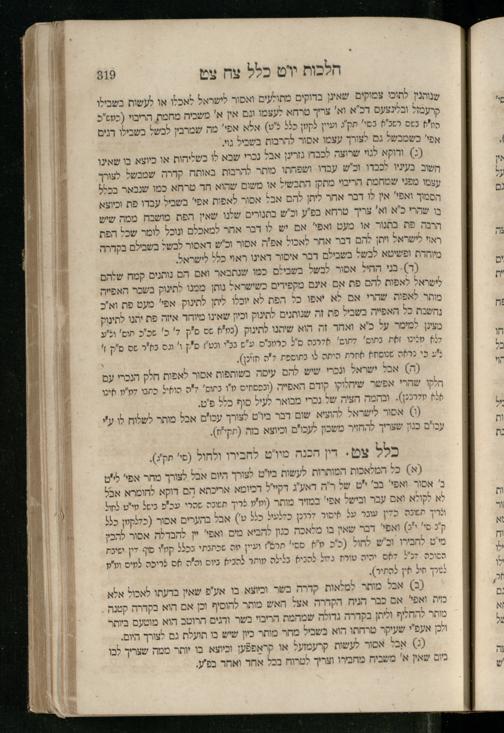 319 חלכות יו״ט כלל צח צט
שנותנין לתוכו צמוקים שאינן בדוקים מתולעים ואסור לישראל לאכלו או לעשות בשבילו
קרעמזל ובלינצעס דכ״א וא׳ צריך טרחא לעצמו וגם אין א׳ משביח מחמת הריבוי
אלא אפי׳ מה שמרבין לבשל בשבילו דגים
אפי׳ כשמבשל גם לצורך עצמו אסור להרבות בשביל גוי.
(ג) ודוקא לגוי שרוצה לכבדו גזרינן אבל נכרי שבא לו בשליחות או כיוצא בו שאינו
חשוב בעיניו לכבדו וכ״ש עבדו ושפחתו מותר להרבות באותה קדרה שמבשל לצורך
עצמו מפני שמחמת הריבוי מתקן התבשיל או משום שהוא חד טרחא כמו שנבאר בכלל
הסמוך ואפי׳ אין לו דבר אחר ליתן להם אבל אסור לאפות אפי׳ בשביל עבדו פת וכיוצא
בו שהרי כ״א וא׳ צריך טרחא בפ״ע וכ״ש בתנורים שלנו שאין הפת מושבח ממה שיש
הרבה פת בתנור או מעט ואפי׳ אם יש לו דבר אחר למאכלם ונוכל לומר שכל הפת
ראוי לישראל ויתן להם דבר אחר לאכול אפ״ה אסור וכ״ש דאסור לבשל בשבילם בקדרה
מיוחדת ופשיטא לבשל בשבילם דבר איסור דאינו ראוי כלל לישראל.
(ד) בני החיל אסור לבשל בשבילם כמו שנתבאר ואם הם נותנים קמח שלהם
לישראל לאפות להם פת אם אינם מקפידים כשישראל נותן ממנו לתינוק בשכר האפייה
מותר לאפות שהרי אם לא יאפו כל הפת לא יוכלו ליתן לתינוק אפי׳ מעט פת וא״כ
נחשבת כל האפייה בשביל פת זה שנותנים לתינוק וכיון שאינו מיוחד איזה פת יתנו לתינוק
מצינן למימר על כ״א ואחד זה הוא שיתנו לתינוק
(ה) אבל ישראל ונכרי שיש להם עיסה בשותפות אסור לאפות חלק הנכרי עם
חלקו שהרי אפשר שיחלוקו קודם האפייה
ובהמה חציה של נכרי מבואר לעיל סוף כלל פ״ט.
(ו) אסור לישראל להוציא שום דבר ביו״ט לצורך עכו״ם אבל מותר לשלוח לו ע״י
עכו״ם כגון שצריך להחזיר משכון לעכו״ם וכיוצא בזה
כלל צט. דין הכנה מיו״ט לחבירו ולחול (סי׳ תק״ג).
(א) כל המלאכות המותרות לעשות ביו״ט לצורך היום אבל לצורך מחר אפי׳ לי״ט
ב׳ אסור ואפי׳ בב׳ י״ט של ר״ה דאע״ג דקיי״ל דכיומא אריכתא הם דוקא לחומרא אבל
לא לקולא ואם עבר ובישל אפי׳ במזיד מותר
אבל בתערים אסור
ואפי׳ דבר שאין בו מלאכה כגון להביא מים ואפי׳ יין להבדלה אסור להכין
מי״ט לחבירו וכ״ש לחול
(ב) אבל מותר למלאות קדרה בשר וכיוצא בו אע״פ שאין בדעתו לאכול אלא
כזית ואפי׳ אם כבר הניח הקדרה אצל האש מותר להוסיף וכן אם הוא בקדרה קטנה
מותר להחליף וליתן בקדרה גדולה שמחמת הריבוי בשר ודגים הרוטב הוא מוטעם ביותר
ולכן אעפ״י שעיקר טרחתו הוא בשביל מחר מותר כיון שיש בו תועלת גם לצורך היום.
(ג) אבל אסור לעשות קרעמזעל או קראפפען וכיוצא בו יותר ממה שצריך לבו
ביום שאין א׳ משביח מחבירו וצריך לטרוח בכל אחד ואחד בפ״ע.